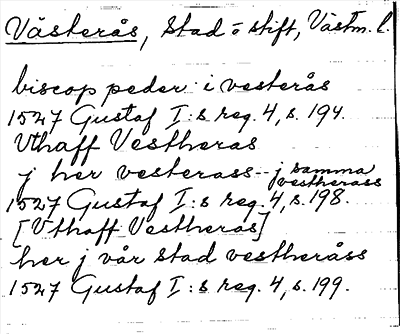 Västerås, Stad o stift, Västm. l.
biscop peder i vesterås
1527 Gustaf I:s reg. 4, s. 194.
Vthaff Vestheras
j her vesterass - j samma vestherass
1527 Gustaf I:s reg. 4, s. 198.
[Vthaff Vestherås]
her j vår stad vestheråss
1527 Gustaf I:s reg. 4, s. 199.